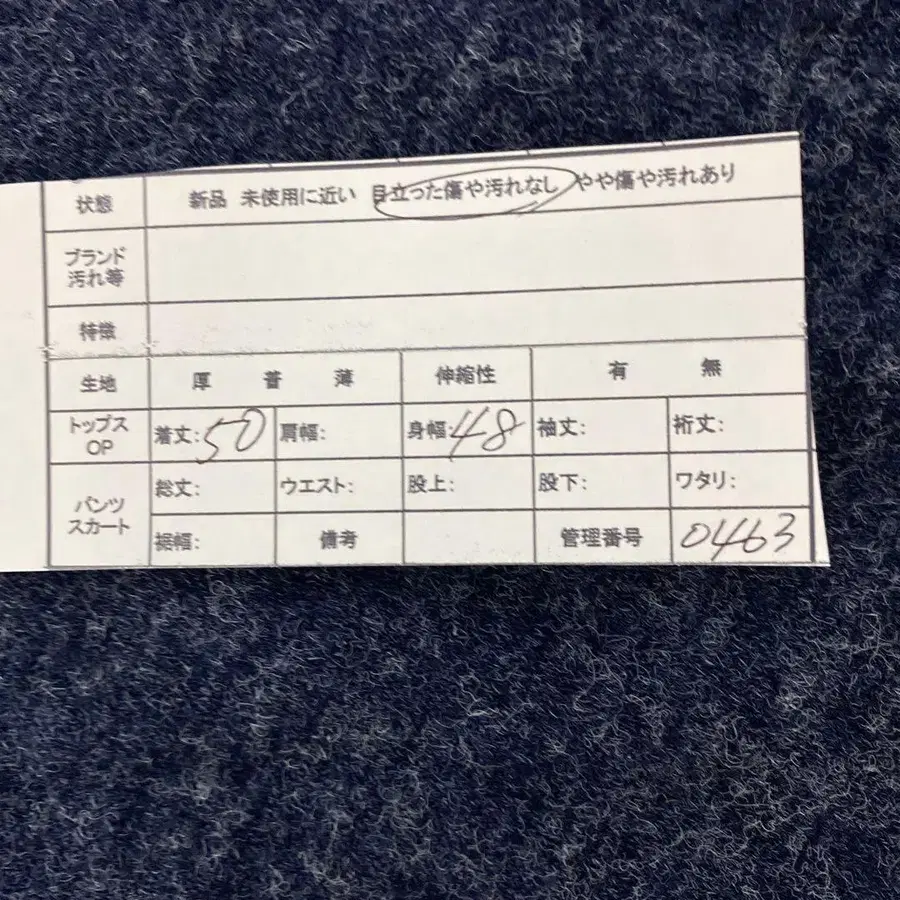 状態 新品 未使用に近い 目立った傷や汚れなし やや傷や汚れあり
ブランド
汚れ等
特徴
生地 厚 普 薄 伸縮性 有 無
トップス
OP
着丈:50 肩幅: 身幅:48 袖丈: 裄丈:
パンツ
スカート
総丈: ウエスト: 股上: 股下: ワタリ:
裾幅: 備考 管理番号 0463